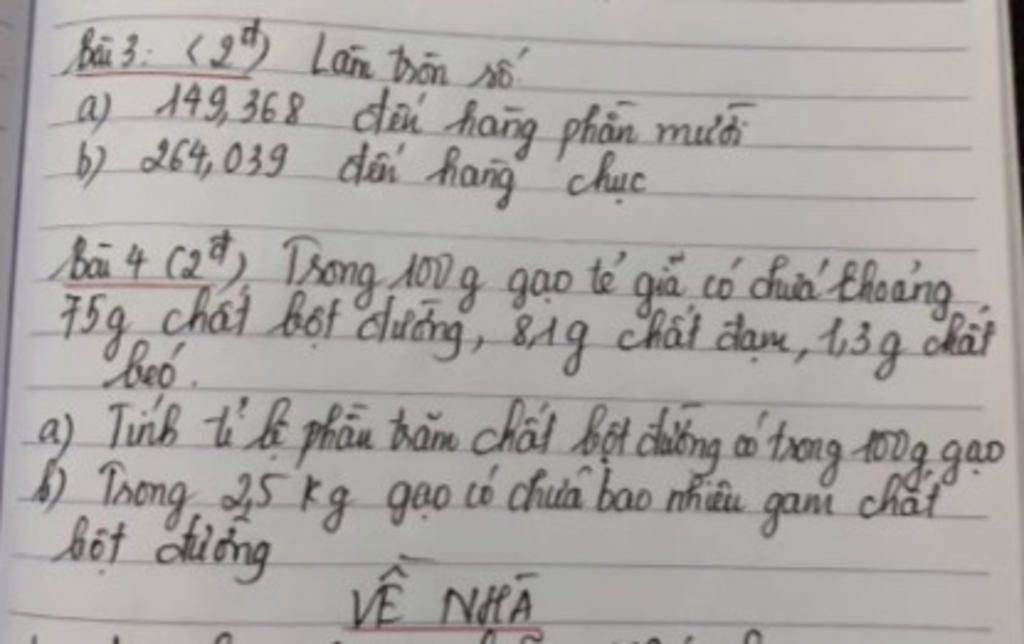 Bài 3: (2đ) Làm tròn số
a) 149,368 đến hàng phần mười
b) 264,039 đến hàng chục
Bài 4 (2đ) Trong 100g gạo tẻ giã có chứa khoảng
75g chất bột đường, 8,1g chất đạm, 1,3g chất
béo.
a) Tính tỉ lệ phần trăm chất bột đường có trong 100g gạo
b) Trong 2,5 kg gạo có chứa bao nhiêu gam chất
bột đường
VỀ NHÀ